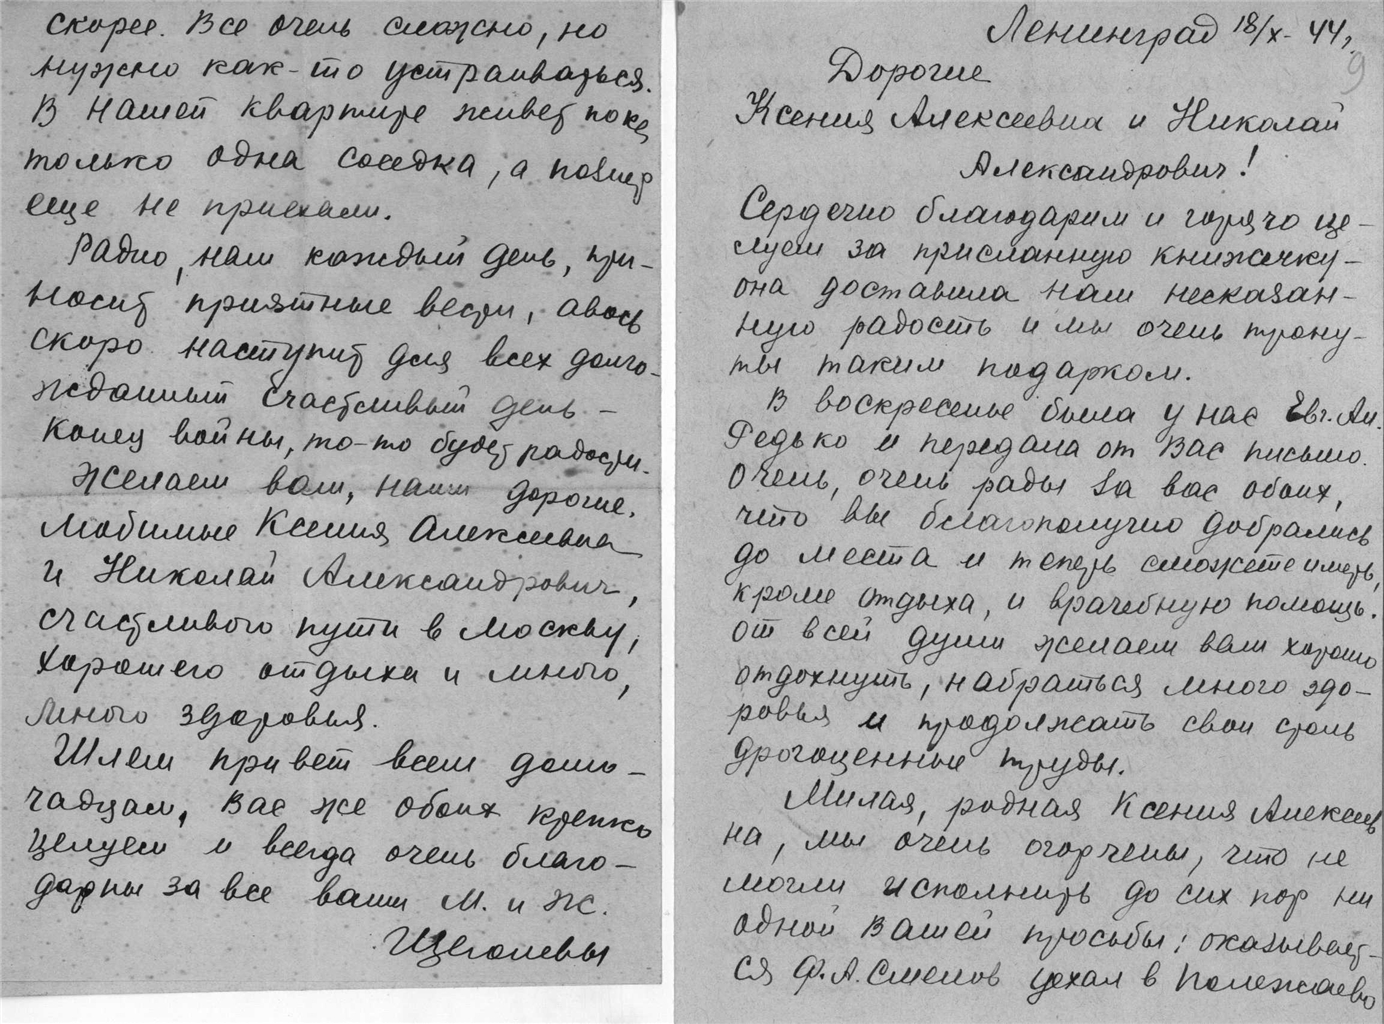 Ленинград 18/X- 44г.
9
Дорогие
Ксения Алексеевна и Николай
Александрович!
Сердечно благодарим и горячо це-
луем за присланную книжечку -
она доставила нам несказан-
ную радость и мы очень трону-
ты таким подарком.
В воскресенье была у нас Евг. Ал.
Федько и передала от Вас письмо.
Очень, очень рады за вас обоих,
что вы благополучно добрались
до места и теперь сможете иметь,
кроме отдыха, и врачебную помощь.
От всей души желаем вам хорошо
отдохнуть, набраться много здо-
ровья и продолжать свои столь
драгоценные труды.
Милая, родная Ксения Алексеев
на, мы очень огорчены, что не
могли исполнить до сих пор ни
одной Вашей просьбы: оказывает-
ся Ф.А. Смелов уехал в Полежаево
скорее. Все очень сложно, но
нужно как-то устраиваться.
В нашей квартире живет пока
только одна соседка, а
еще не приехали.
Радио, нам каждый день, при-
носит приятные вести, авось
скоро наступит для всех долго-
жданный счастливый день -
конец войны, то-то будет радости.
Желаем вам, наши дорогие,
любимые Ксения Алексеевна
и Николай Александрович,
счастливого пути в Москву,
хорошего отдыха и много,
много здоровья.
Шлем привет всем домо-
чадцам, Вас же обоих крепко
целуем и всегда очень благо-
дарны за все ваши М. и Ж.
Щеголевы